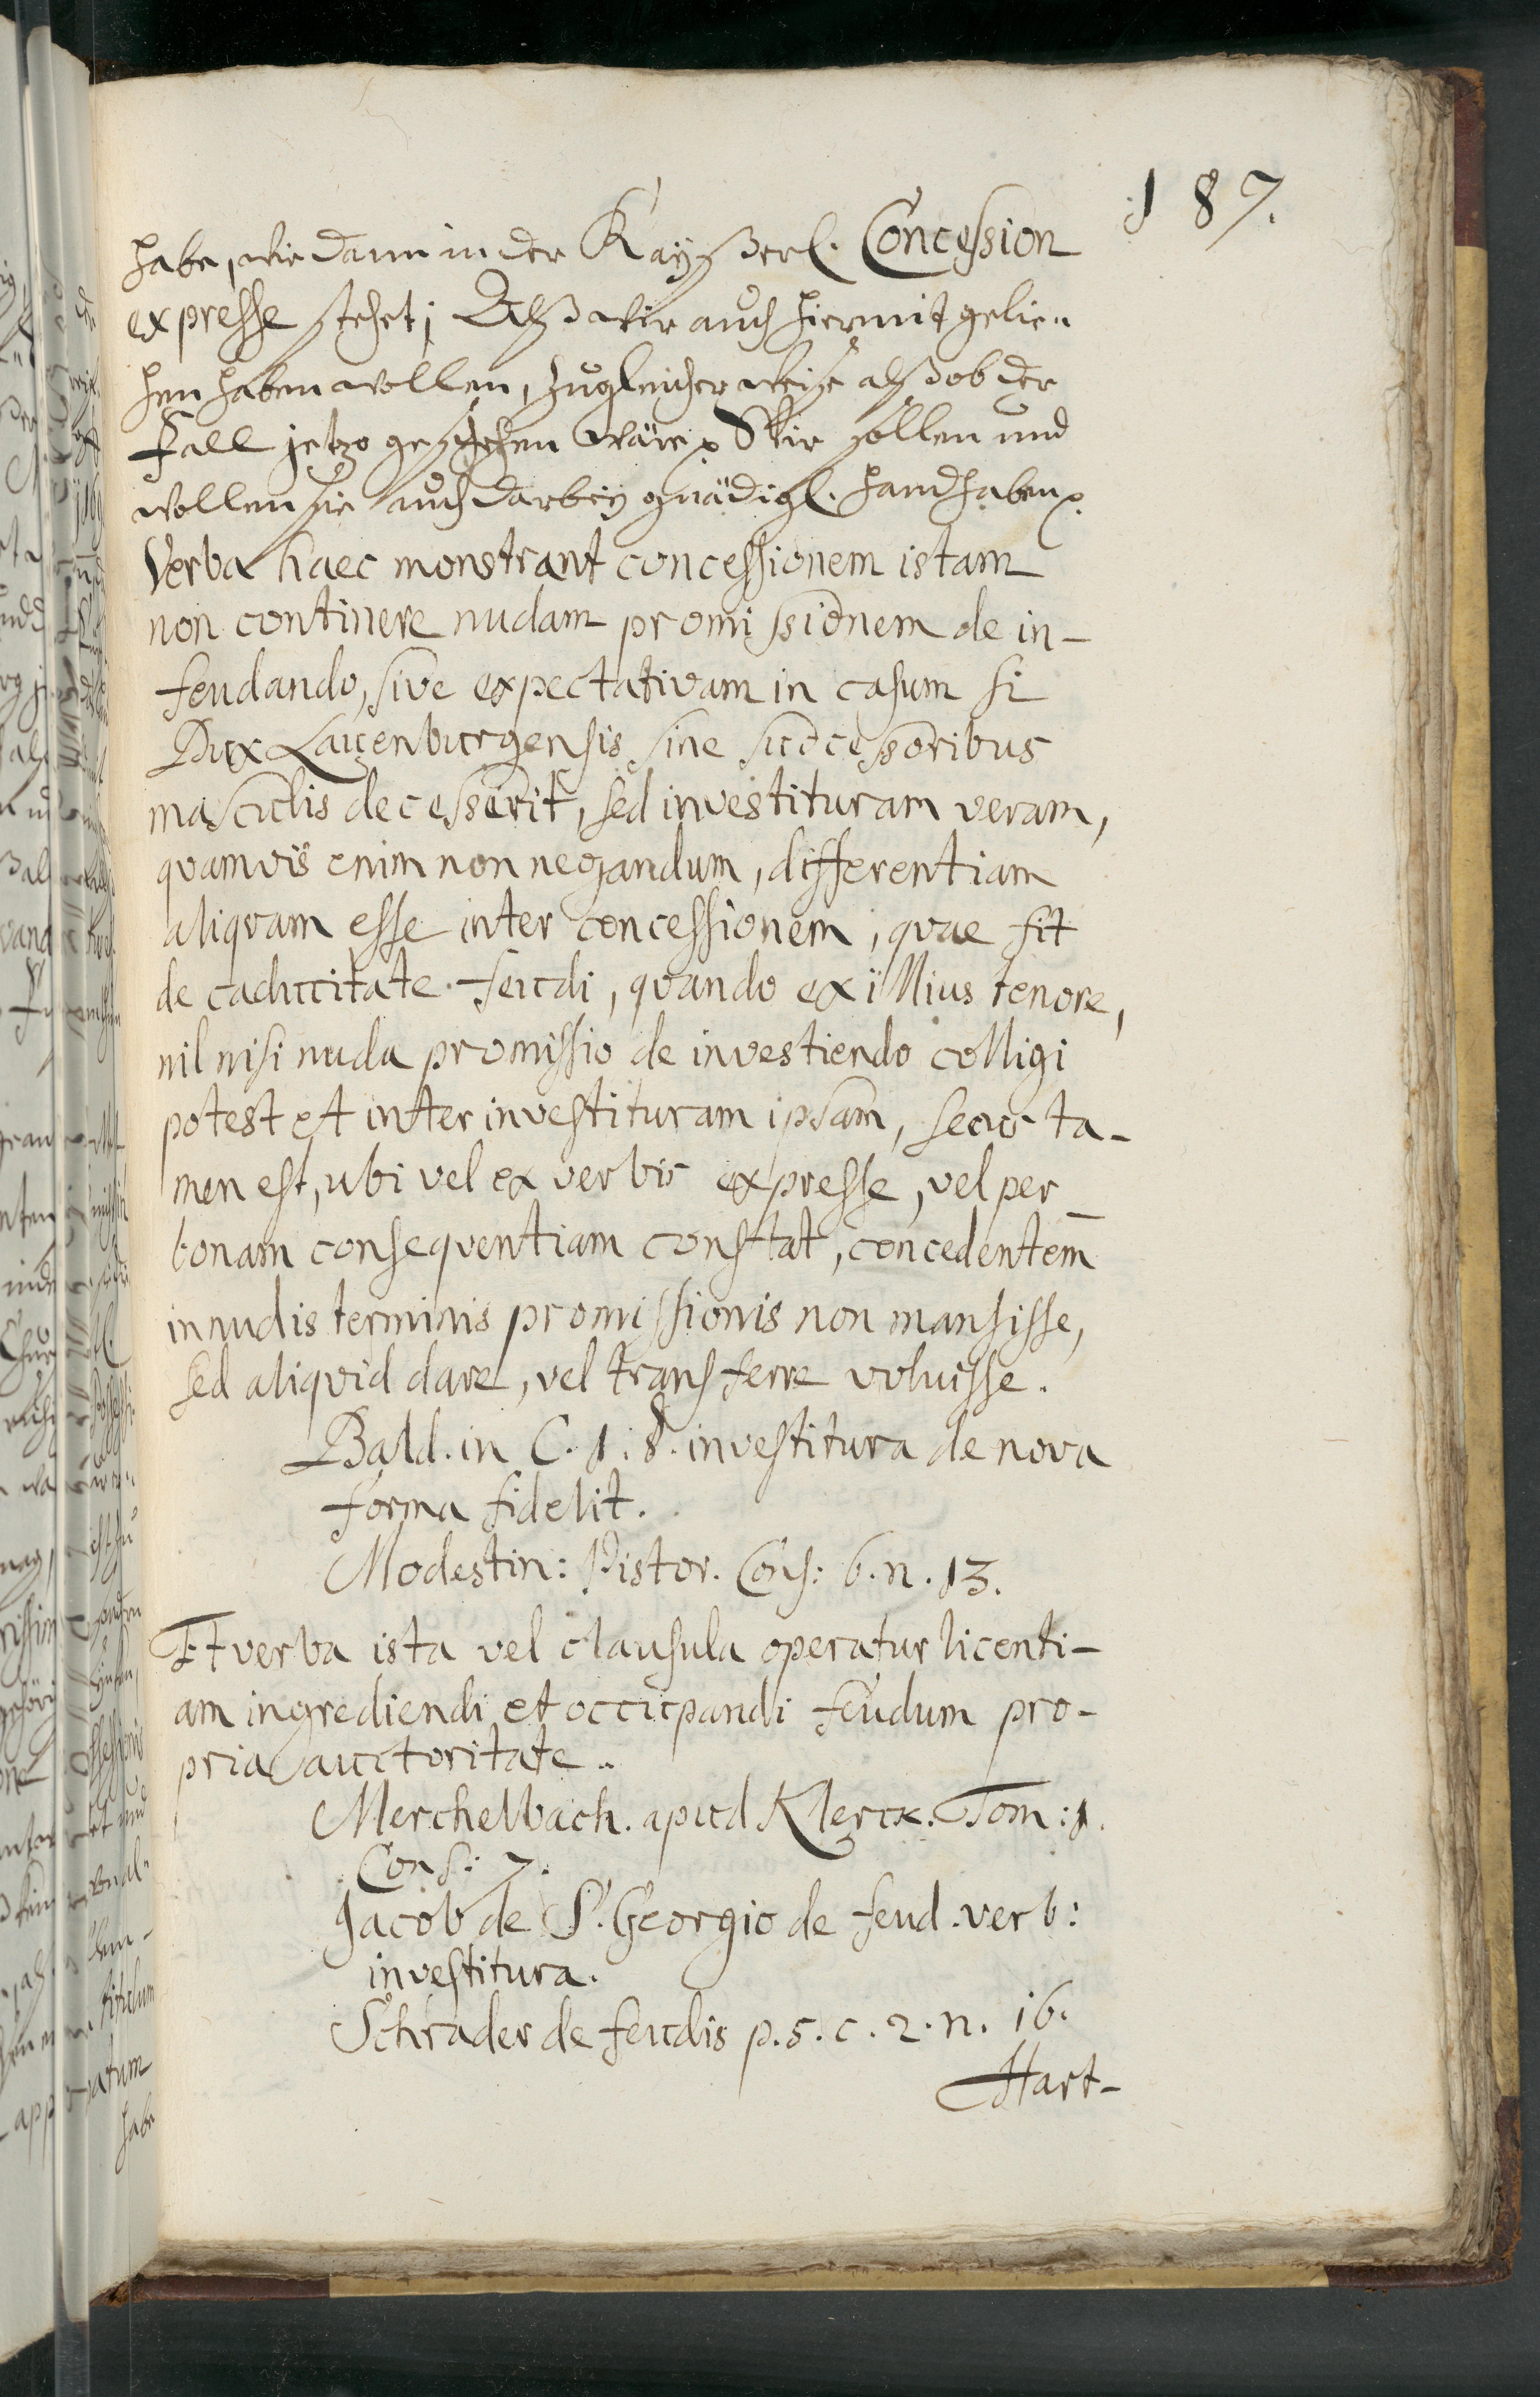 187.
habe, wie dann in der Kayßerl. Concession
expresse stehet; Alß wir auch hiermit gelie-
hen haben wollen, zugleicher weise alß ob der
Fall jetzo geschehen wäre. Wir sollen und
wollen sie auch darbey gnädigl. handhaben.
Verba haec monstrant concessionem istam
non continere nudam promissionem de in-
feudando, sive expectativam in casum si
Dux Lauenburgensis sine successoribus
masculis decesserit, sed investituram veram,
quamvis enim non negandum, differentiam
aliqvam esse inter concessionem, qvae fit
de caducitate feudi, qvando ex illius tenore,
nil nisi nuda promissio de investiendo colligi
potest et inter investituram ipsam, secus ta-
men est, ubi vel ex verbis expresse, vel per
bonam conseqventiam constat, concedentem
in nudis terminis promissionis non mansisse,
sed aliqvid dare, vel transferre voluisse.
Bald. in C. 1. §. investitura de nova
forma fidelit.
Modestin: Pistor. Cons: 6. n. 13.
Et verba ista vel clausula operatur licenti-
am ingrediendi et occupandi feudum pro-
pria auctoritate.
Merchelbach. apud Klerck. Tom: 1.
Cons: 7.
Jacob de S. Georgio de feud. verb:
investitura.
Schrader de feudis p. 5. c. 2. n. 16.
Hart-